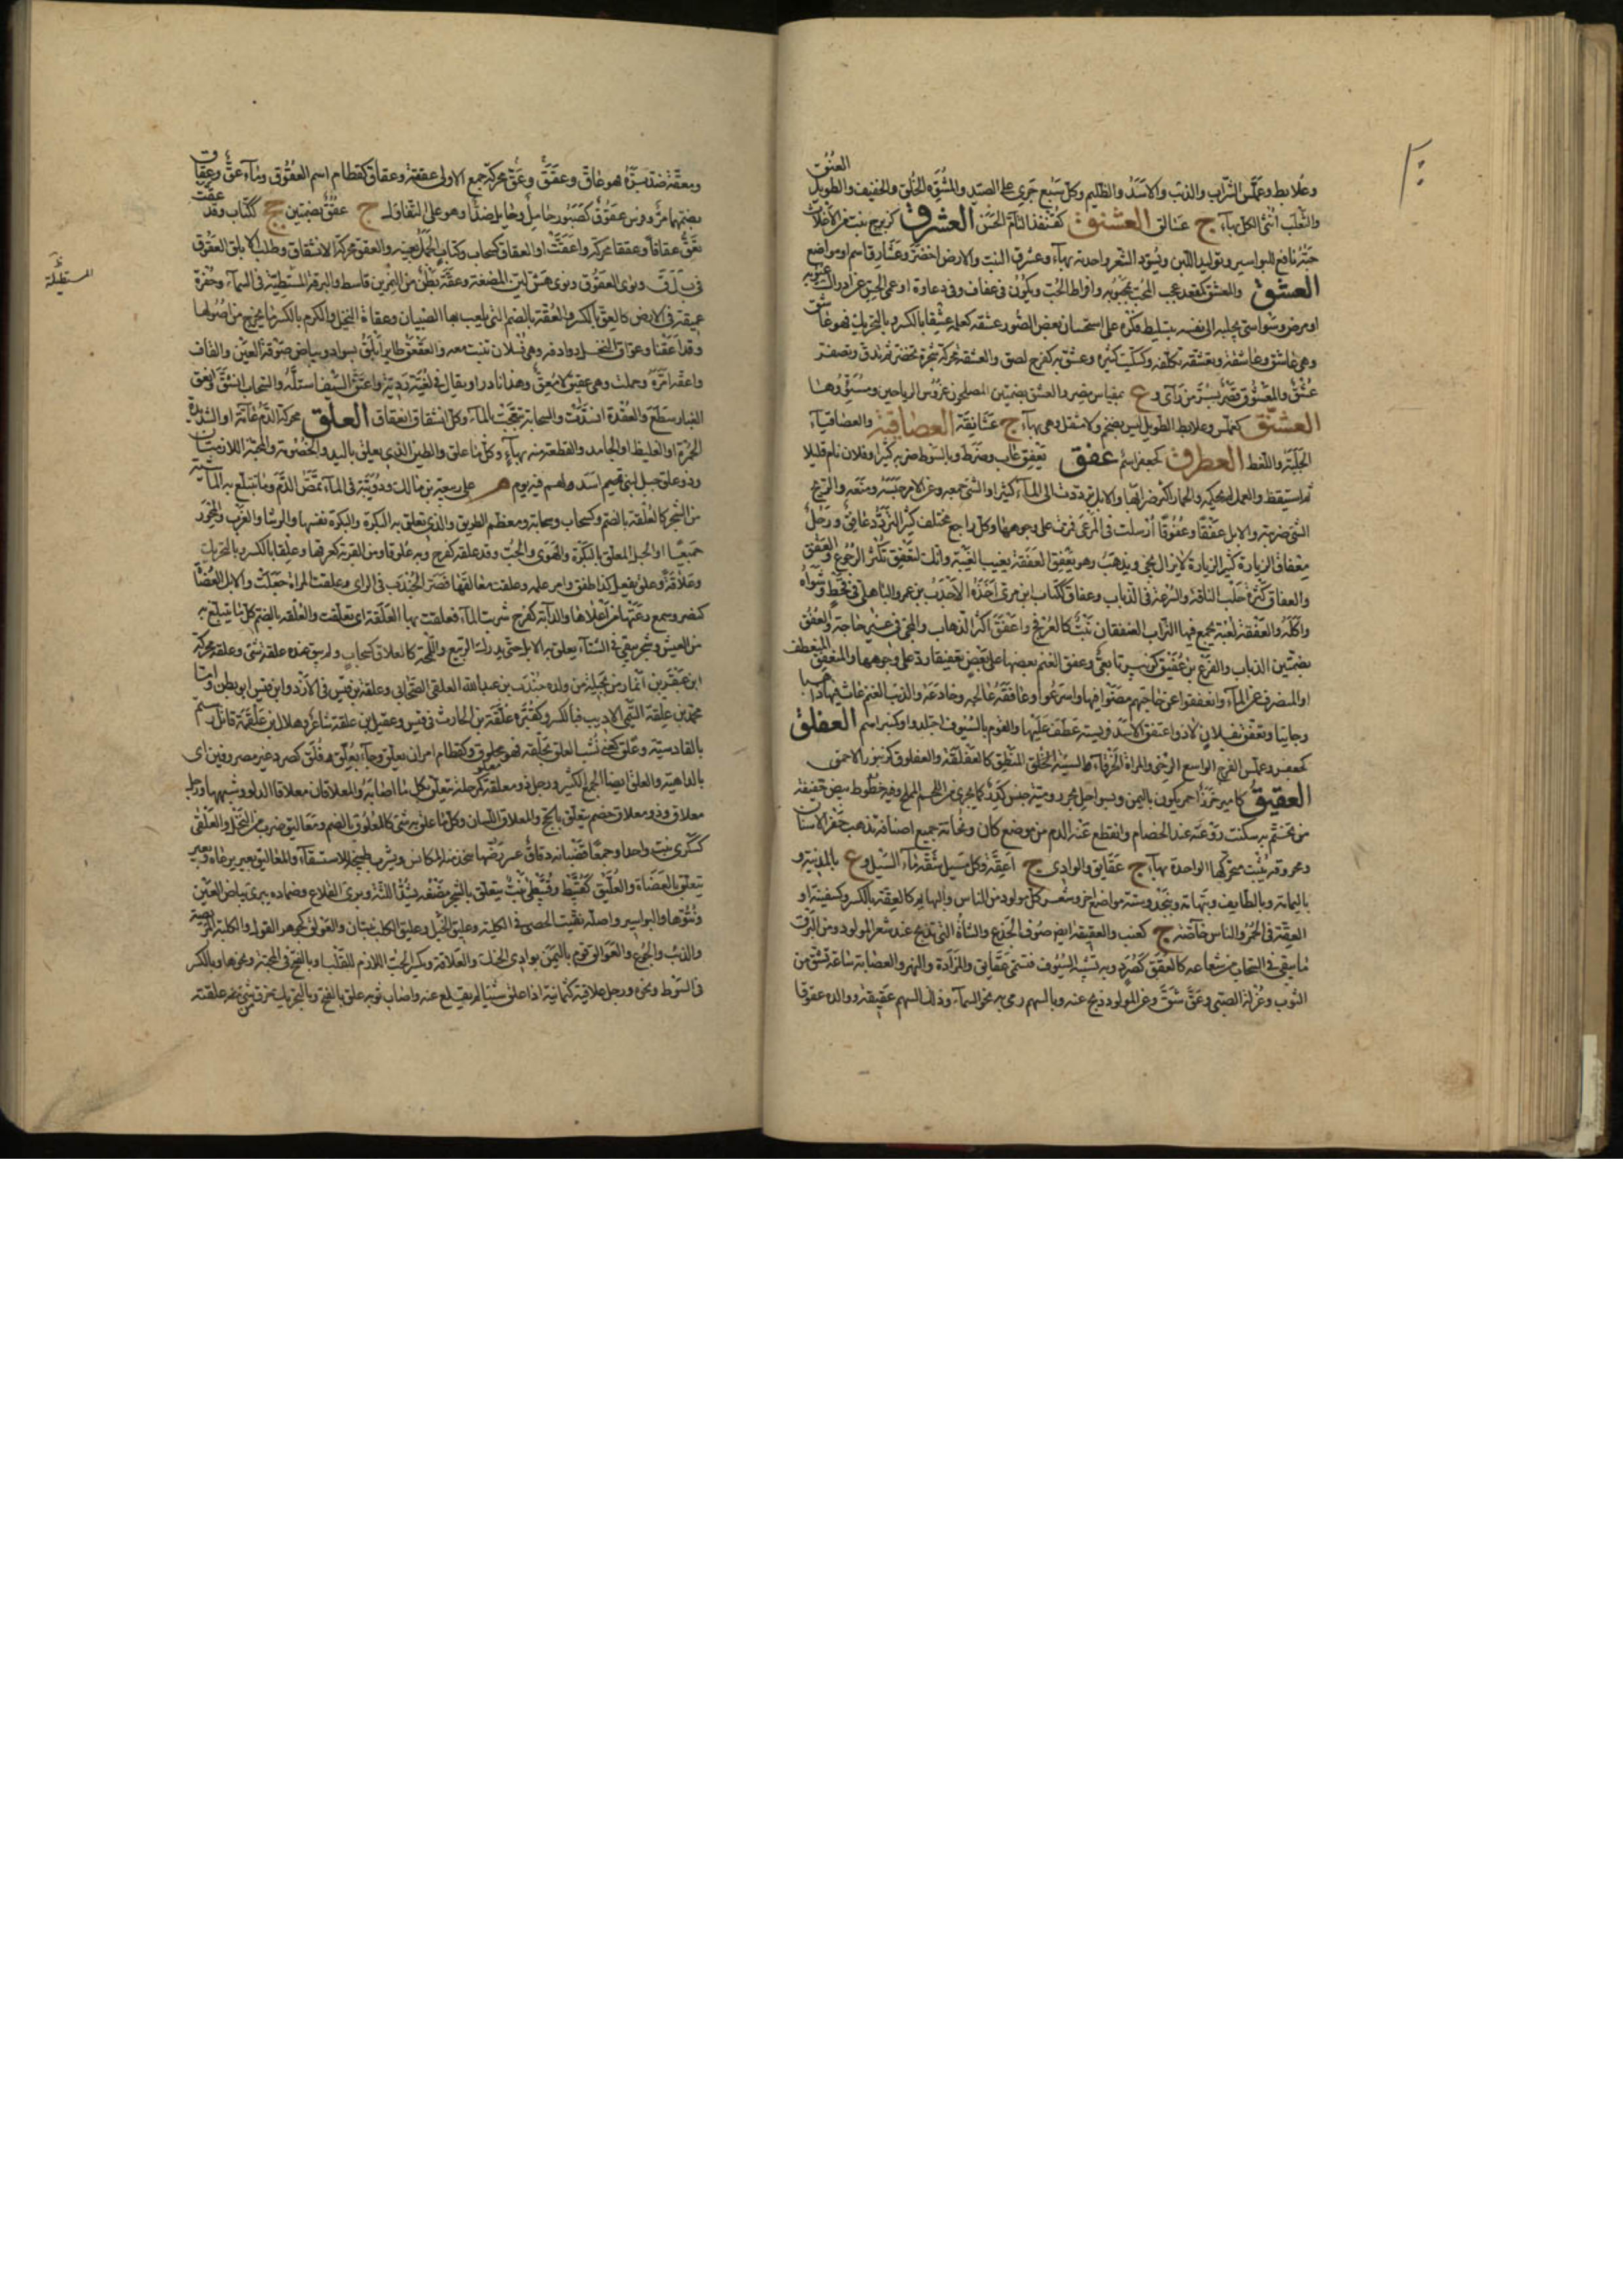 العنوق
وعلابط وعملس التراب والذئب والاسد والظليم وكل سبع جرى على الصيد والمشوه الخلق والخفيف والطويل
والثعلب انثى الكل بهاء ج عسالق العشنوق كقنفذ التام الحسن العشرق كزبرج نبت
حبه نافع للبواسير وتوليد اللبن ويسود الشعر واحدته بهاء وعشرق النبت والارض اخضر وعشارق اسم او مواضع
العشق والمعشق كمقعد عجب المحب بمحبوبه وافراط الحب ويكون في عفاف وفي دعارة او عمى الحس عن ادراك عيوبه
او مرض وسواسي يجلبه الى نفسه بتسليط فكره على استحسان بعض الصور عشقه كعلمه عشقا بالكسر وبالتحريك فهو عاشق
وهي عاشق وعاشقة وتعشقه تكلفه وكسكيت كثيره وعشق به كفرح لصق والعشقة محركة شجرة تخضر ثم تدق وتصفر
ج عشق والمعشوق قصر بسر من راى وع بمقياس مصر والعشق بضمتين المصلحون غروس الرياحين ومسووها
العشنق كعملس وعلابط الطويل ليس بضخم ولا مثقل وهي بهاء ج عشانقة العصاقية والعصاقياء
الجلبة واللغط العطرق كجعفر اسم عفق يعفق غاب وضرط وبالسوط ضربه كثيرا وفلان نام قليلا
ثم استيقظ والعمل لم يحكمه والحمار اكثر ضرابها والابل ترددت الى الماء كثيرا والشئ جمعه وعن الامر حبسه ومنعه والريح
الشئ ضربته والابل عفقا وعفوقا ارسلت في المرعى فمرت على وجوهها وكل راجع مختلف كثير التردد عافق ورجل
معفاق الزيارة كثير الزيارة لا يزال يجئ ويذهب وهو يعفق العفقة يغيب الغيبة وانك لتعفق تكثر الرجوع والعفق
والعفاق كثرة حلب الناقة والسرعة في الذهاب وعفاق ككتاب ابن مرى اخذه الاحدب بن عمرو الباهلي في قحط وشواه
واكله والعفقة لعبة يجمع فيها التراب العنفقان نبت كالعرفج واعفق اكثر الذهاب والمجئ في غير حاجة والعفق
بضمتين الذئاب والفرع بن عفيق كزبير تابعي وعفق الغنم بعضها على بعض تعفيقا ردها على وجوهها والمنعفق المنعطف
او المنصرف عن الماء وانعفقوا في حاجتهم مضوا فيها واسرعوا وعافقه عالجه وخادعه والذئب الغنم عاث فيها ذاهبا
وجائيا وتعفق بفلان لاذ واعتفق الاسد فريسته عطف عليها والقوم بالسيوف اجتلدوا وكمنبر اسم العفلق
كجعفر وعملس الفرج الواسع الرخو والمراة الخرقاء السيئة الخلق المنطق كالعفلقة والعفلوق كزنبور الاحمق
العقيق كامير خرز احمر يكون باليمن وبسواحل بحر رومية جنس كدر كماء يجرى من اللحم المملح وفيه خطوط بيض خفيفة
من تختم به سكنت روعته عند الخصام وانقطع عنه الدم من اي موضع كان ونحاتة جميع اصنافه تذهب حفر الاسنان
ومحروقه يثبت متحركها الواحدة بهاء ج عقايق والوادى ج اعقة وكل مسيل شقه ماء السيل وع بالمدينة و
باليمامة وبالطايف وبتهامة وبنجد وستة مواضع اخر وشعر كل مولود من الناس والبهايم كالعقة بالكسر وكسفينة او
العقة في الحمر والناس خاصة ج كعنب والعقيقة ايضا صوف الجذع والشاة التي تذبح عند شعر المولود ومن البرق
ما يبقى في السحاب من شعاعه كالعقق كصرد وبه تشبه السيوف فتسمى عقايق والمزادة والنهر والعصابة ساعة تشق من
الثوب وغرلة الصبي وعق شق وعن المولود ذبح عنه وبالسهم رمى به نحو السماء وذلك السهم عقيقة ووالده عقوقا
ومعقة ضد بره فهو عاق وعقق وعق محركة جمع الاولى عققة وعقاق كقطام اسم العقوق وماء عق وعقاق
بضمهما مر وفرس عقوق كصبور حامل او حايل ضد او هو على التفاؤل ج عقق بضمتين جج ككتاب وقد عقت
تعق عقاقا وعققا محركة واعقت او العقاق كسحاب وكتاب الحمل بعينه والعقق محركة الانشقاق وطلب الابلق العقوق
في ب ل ق ونوى العقوق نوى هش لين الممضغة وعقة بطن من النمر بن قاسط والبرقة المستطيلة في السماء وحفرة
المستطيلة
عميقة في الارض كالعق بالكسر والعقة بالضم التي يلعب بها الصبيان وعقان النخيل والكرم بالكسر ما يخرج من اصولها
وقد اعقتا وعواق النخل روادفه وهي فسلان تنبت معه والعقعق طاير ابلق بسواد وبياض صوته العين والقاف
واعقه امره وحملت وهي عقوق لا معق وهذا نادر او يقال في لغية ردية واعتق السيف استله والسحاب انشق وانعق
الغبار سطع والعقدة انشدت والسحابة تبعجت بالماء وكل انشقاق انعقاق العلق محركة الدم عامة او الشديد
الحمرة او الغليظ او الجامد والقطعة منه بهاء وكل ما علق والطين الذي يعلق باليد والخصومة والمحبة اللازمتان
وذو علق جبل لبني اسد ولهم فيه يوم م على ربيعة بن مالك ودويبة في الماء تمص الدم وما تتبلغ به الماشية
من الشجر كالعلقة بالضم وكسحاب وسحابة ومعظم الطريق والذي تعلق به البكرة والبكرة نفسها والرشا والغرب والمحور
جميعا او الحبل المعلق بالبكرة والهوى والحب وقد علقه كفرح وبه علوقا ومن القربة كعرقها وعلقا بالكسر وبالتحريك
وعلاقة وعلق يفعل كذا طفق وامره علمه وعلقت معالقها وصر الجندب في الراى وعلقت المراة حبلت والابل العضاه
كنصر وسمع رعتها من اعلاها والدابة كفرح شربت الماء فعلقت بها العلقة اى تعلقت والعلقة بالضم كل ما يتبلغ به
من العيش وشجر يبقى في الشتاء يعلق به الابل حتى يدرك الربيع واللمجة كالعلاق كسحاب ولم يبق عنده علقة شئ وعلقة محركة
ابن عبقر بن انمار من بجيلة من ولده جندب بن عبد الله العلقي الصحابي وعلقة بن قيس في الازد وابن قيس ابو بطن واما
محمد بن علقة التيمي الاديب فبالكسر وكقبرة علقة بن الحارث في قيس وعقيل بن علقة شاعر وهلال بن علقمة قاتل رستم
بالقادسية وعلق كعني نشب العلق بحلقه فهو معلوق وكقطام امر اى تعلق وجاء بعلق فلق كصرد غير مصروفين اى
بالداهية والعلق ايضا الجمع الكثير ورجل ذو معلقة كمرحلة يتعلق بكل ما اصابه والمعلاقان معلاقا الدلو وشبهها ورجل
معلاق وذو معلاق خصم يتعلق بالحجج والمعلاق اللسان وكل ما علق به شئ كالمعلوق بالضم ومعاليق ضرب من النخل والعلقى
كسكرى نبت واحدا وجمعا قضبانه دقاق عسر رضها يتخذ منه المكانس ويشرب طبيخه للاستسقاء والعالق بعير يرعاه وبعير
يتعلق بالعضاه والعليق كقبيط وقبيطى نبت يتعلق بالشجر مضغه يشد اللثة ويبرى القلاع وضماده يبرى بياض العين
ونتوها والبواسير واصله يفتت الحصى في الكلية وعليق الجبل وعليق الكلب نبتان والعولق كجوهر الغول والكلبة الحريصة
والذئب والجوع والعوالق قوم باليمن بوادى الحنك والعلاقة ويكسر الحب اللازم للقلب او بالفتح في المحبة ونحوها وبالكسر
في السوط ونحوه ورجل علاقية كثمانية اذا علق شيئا لم يقلع عنه واصاب ثوبه علق بالفتح وبالتحريك خرق من شئ علقه